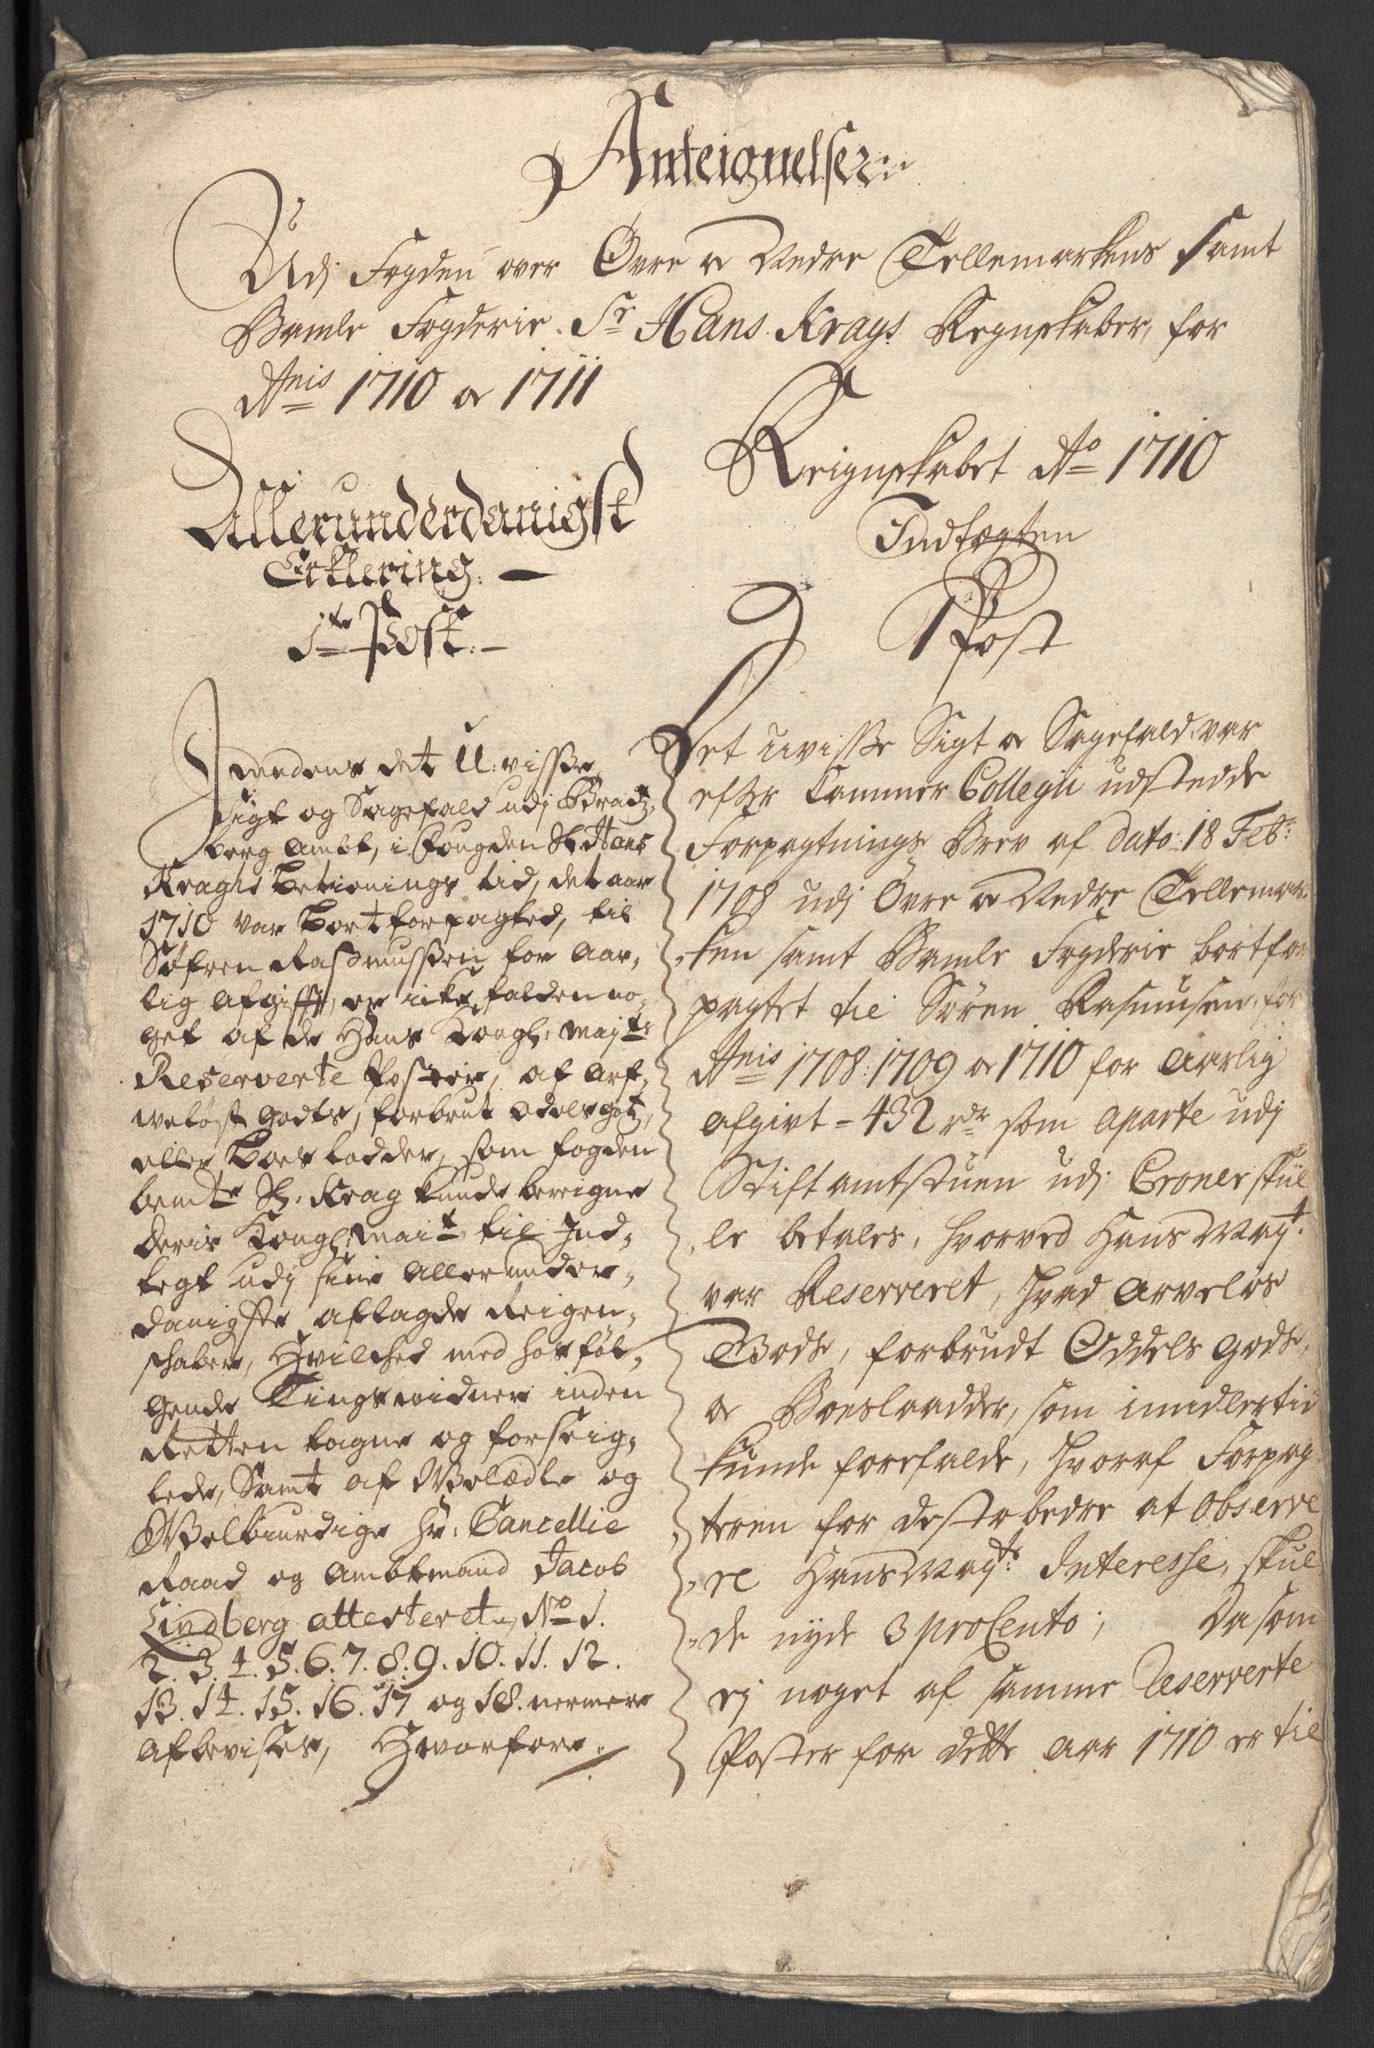 Anteignelser
Udj Fogden over Øvre o Nedre Tellemarkens samt
Bamle Fogderie Sr Hans Krags Regnskaber, for
Anis 1710 o 1711
Allerunderdanigst
Erklering.
1te Post.
Imedens det U:visse
Sigt og Sagefald udj Bradtz,
berg Ambt, i Fougden Sr Hans
Kraghs betienings tid, det aar
1710 var bortforpagted, til
Søfren Rasmussen for aar,
lig afgifft, er icke falden no,
get af de Hans Kongl: Mayts
Reserverte Poster, af arf,
weløst godts, forbrut odels gotz,
eller Boes lodder, som fogden
bemte Sr. Krag kunde berigne
deris Kongl. Mait til Ind,
tegt udj sine allerunder,
danigste aflagde Reigen,
schaber, Hvilched med hosføl,
gende Tings vidner inden
Retten tagne og forseig,
lede, Samt af Velædle og
Velbiurdige Hr: Cancellie
Raad og Ambtmand Jacob
Lindberg atterteret, No 1.
2. 3. 4. 5. 6. 7. 8. 9. 10. 11. 12.
13. 14. 15. 16. 17 og 18. nermere
afbevises, Hvorfore.
Reignskabet Ao 1710
Indtægten
1 Post
Det uvisse Sigt o Sagefald var
efter Cammer Collegii udstedde
Forpagtnings Brev af dato 18 Febr:
1708 udj Øvre o Nedre Tellemar,
ken samt Bamle Fogderie bortfor
pagtet til Sören Rasmusen for
Anis 1708: 1709 o 1710 for aarlig
afgivt - 432 rdr som aparte udj
Stiftamtstuen udj Croner skul
le betales, hvorved Hans Mayt.
var Reserveret, hvad arveløs
Gods, forbrudt Oddels gods,
o Boeslaadder, som imidlertid
kunde forefalde, hvoraf Forpag
teren for desto bedre at observe
re Hans Mayts Interesse, skul
de nyde 3 pro Cento; Da som
ej noget af samme Reserverte
Poster for dette aar 1710 er til